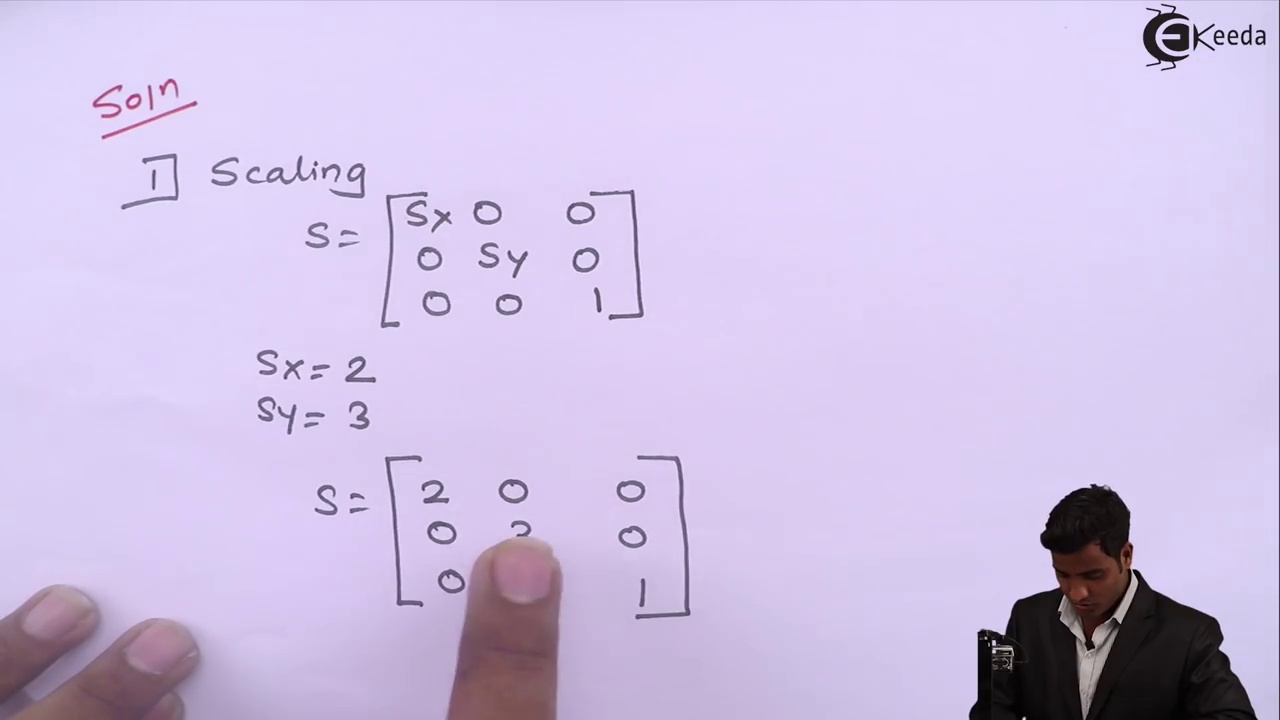 EKeeda
Soln
1] Scaling
S = [Sx 0 0
0 Sy 0
0 0 1]
Sx = 2
Sy = 3
S = [2 0 0
0 0
0 1]